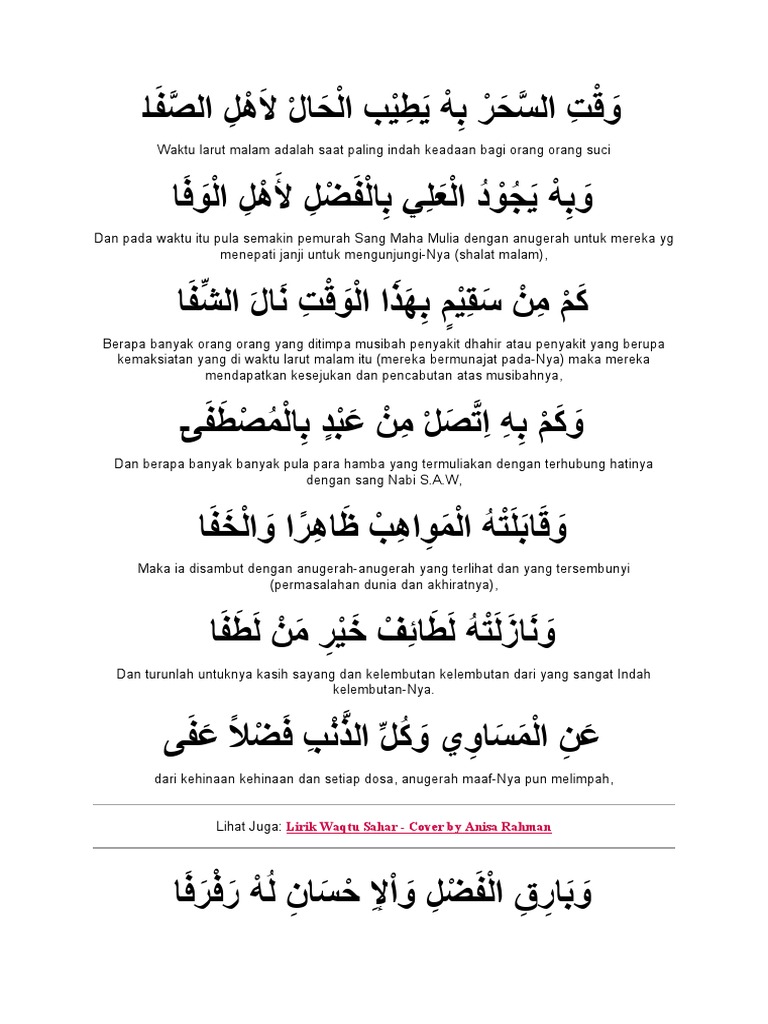 وَقْتِ السَّحَرْ بِهْ يَطِيْب الْحَالْ لاَهْلِ الصَّفَا
Waktu larut malam adalah saat paling indah keadaan bagi orang orang suci
وَبِهْ يَجُوْدُ الْعَلِي بِالْفَضْلِ لأَهْلِ الْوَفَا
Dan pada waktu itu pula semakin pemurah Sang Maha Mulia dengan anugerah untuk mereka yg
menepati janji untuk mengunjungi-Nya (shalat malam),
كَمْ مِنْ سَقِيْمٍ بِهَذَا الْوَقْتِ نَالَ الشِّفَا
Berapa banyak orang orang yang ditimpa musibah penyakit dhahir atau penyakit yang berupa
kemaksiatan yang di waktu larut malam itu (mereka bermunajat pada-Nya) maka mereka
mendapatkan kesejukan dan pencabutan atas musibahnya,
وَكَمْ بِهِ اِتَّصَلْ مِنْ عَبْدٍ بِالْمُصْطَفَى
Dan berapa banyak banyak pula para hamba yang termuliakan dengan terhubung hatinya
dengan sang Nabi S.A.W,
وَقَابَلَتْهُ الْمَوِاهِبْ ظَاهِرًا وَالْخَفَا
Maka ia disambut dengan anugerah-anugerah yang terlihat dan yang tersembunyi
(permasalahan dunia dan akhiratnya),
وَنَازَلَتْهُ لَطَائِفْ خَيْرِ مَنْ لَطَفَا
Dan turunlah untuknya kasih sayang dan kelembutan kelembutan dari yang sangat Indah
kelembutan-Nya.
عَنِ الْمَسَاوِي وَكُلِّ الذَّنْبِ فَضْلاً عَفَى
dari kehinaan kehinaan dan setiap dosa, anugerah maaf-Nya pun melimpah,
Lihat Juga: Lirik Waqtu Sahar - Cover by Anisa Rahman
وَبَارِقِ الْفَضْلِ وَاْلإِ حْسَانِ لُهْ رَفْرَفَا